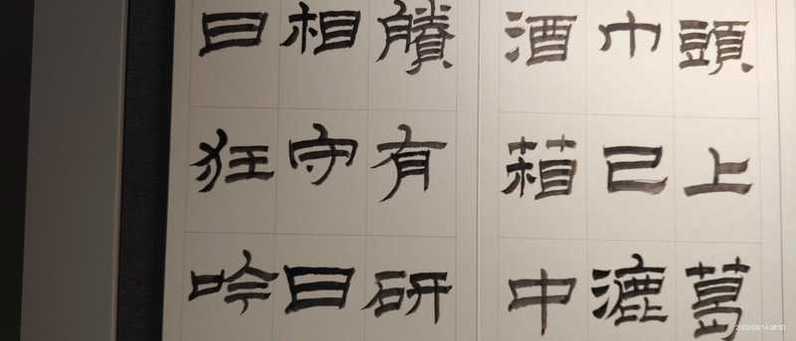 頭上葛
巾已漉
酒箱中
賸有研
相守日
日狂吟